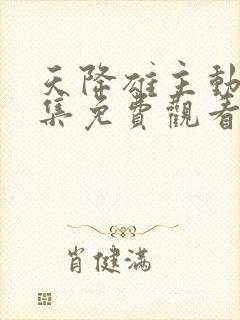 天降雄主動
集免費觀看
肖健滿